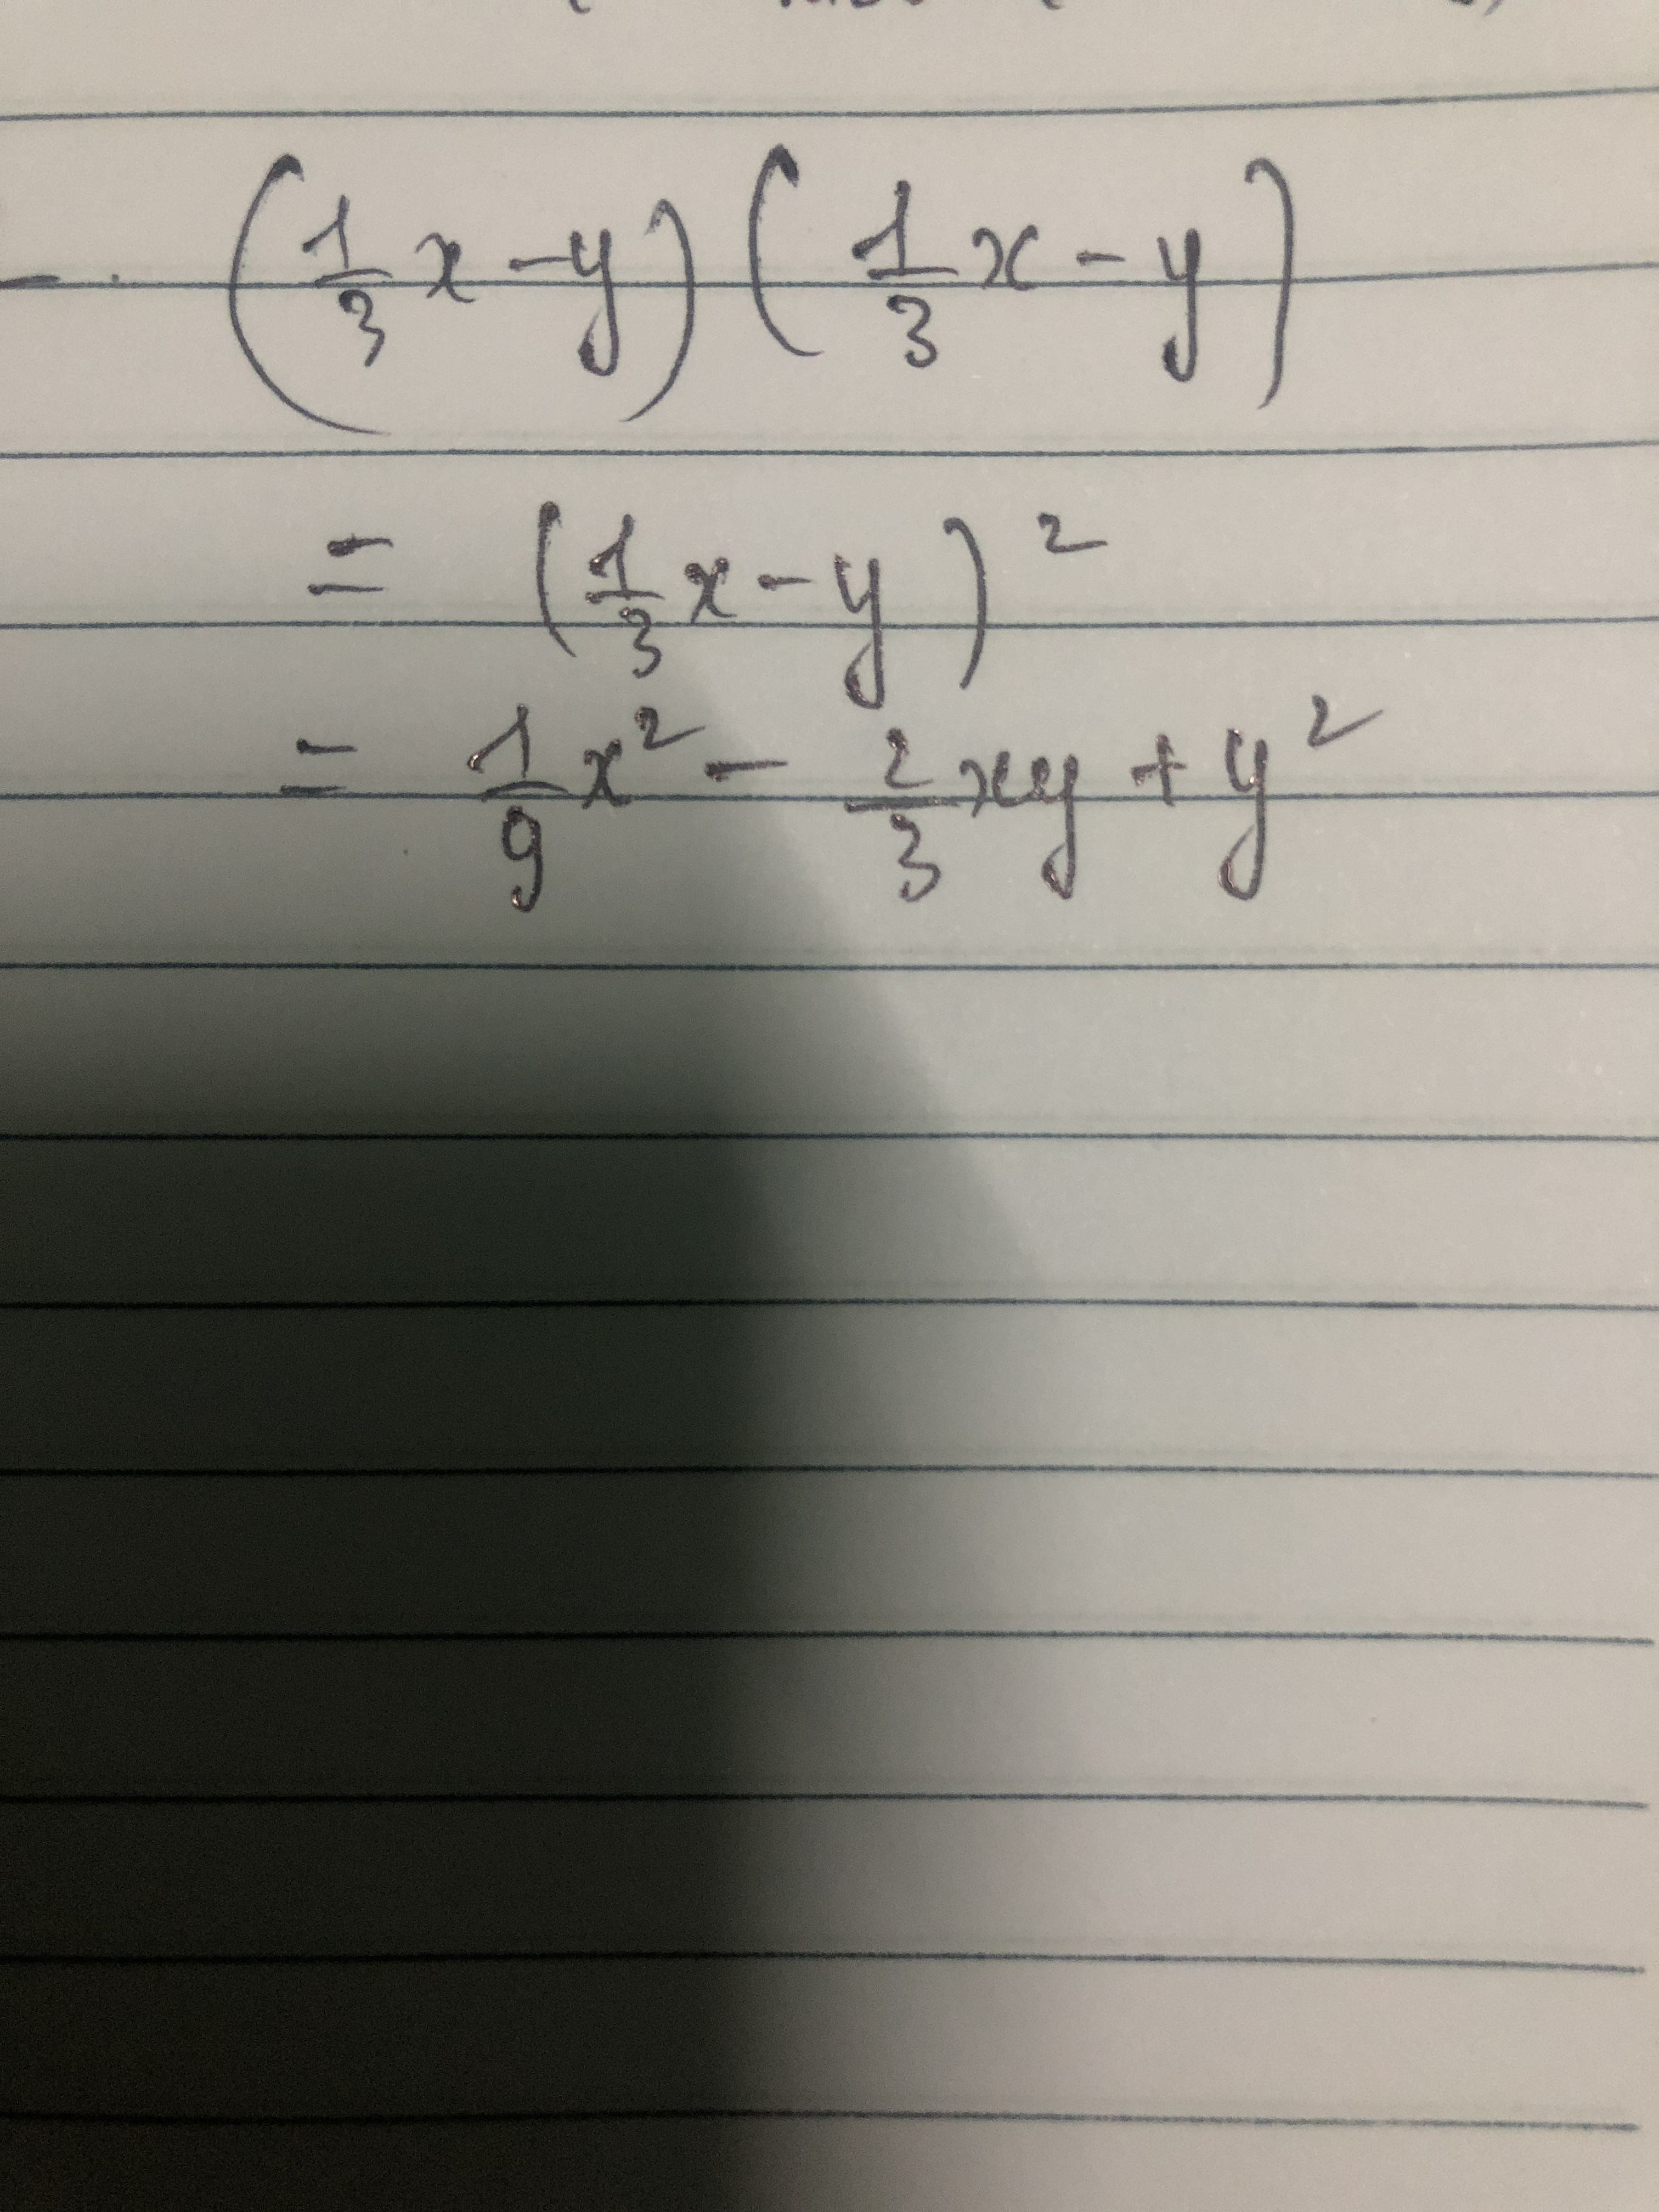 - (1/3 x - y) (1/3 x - y)
= (1/3 x - y)²
= 1/9 x² - 2/3 xy + y²